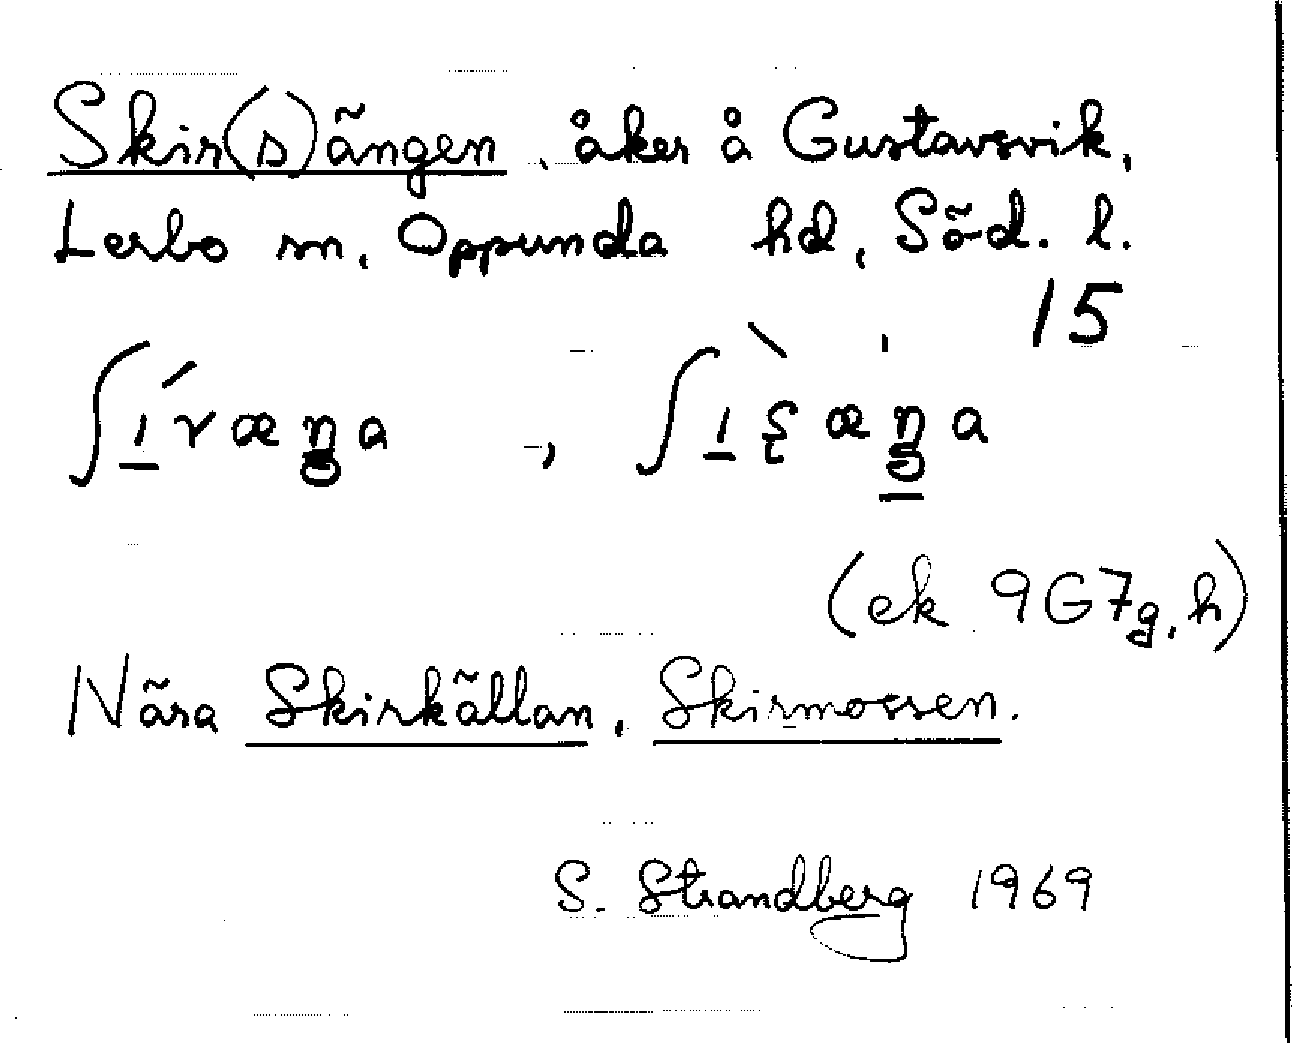 Skir(s)ängen, åker å Gustavsvik,
Lerbo sn, Oppunda hd, Söd. l.
15
(ek 9G7g,h)
Nära Skirkällan, Skirmossen.
S. Strandberg 1969